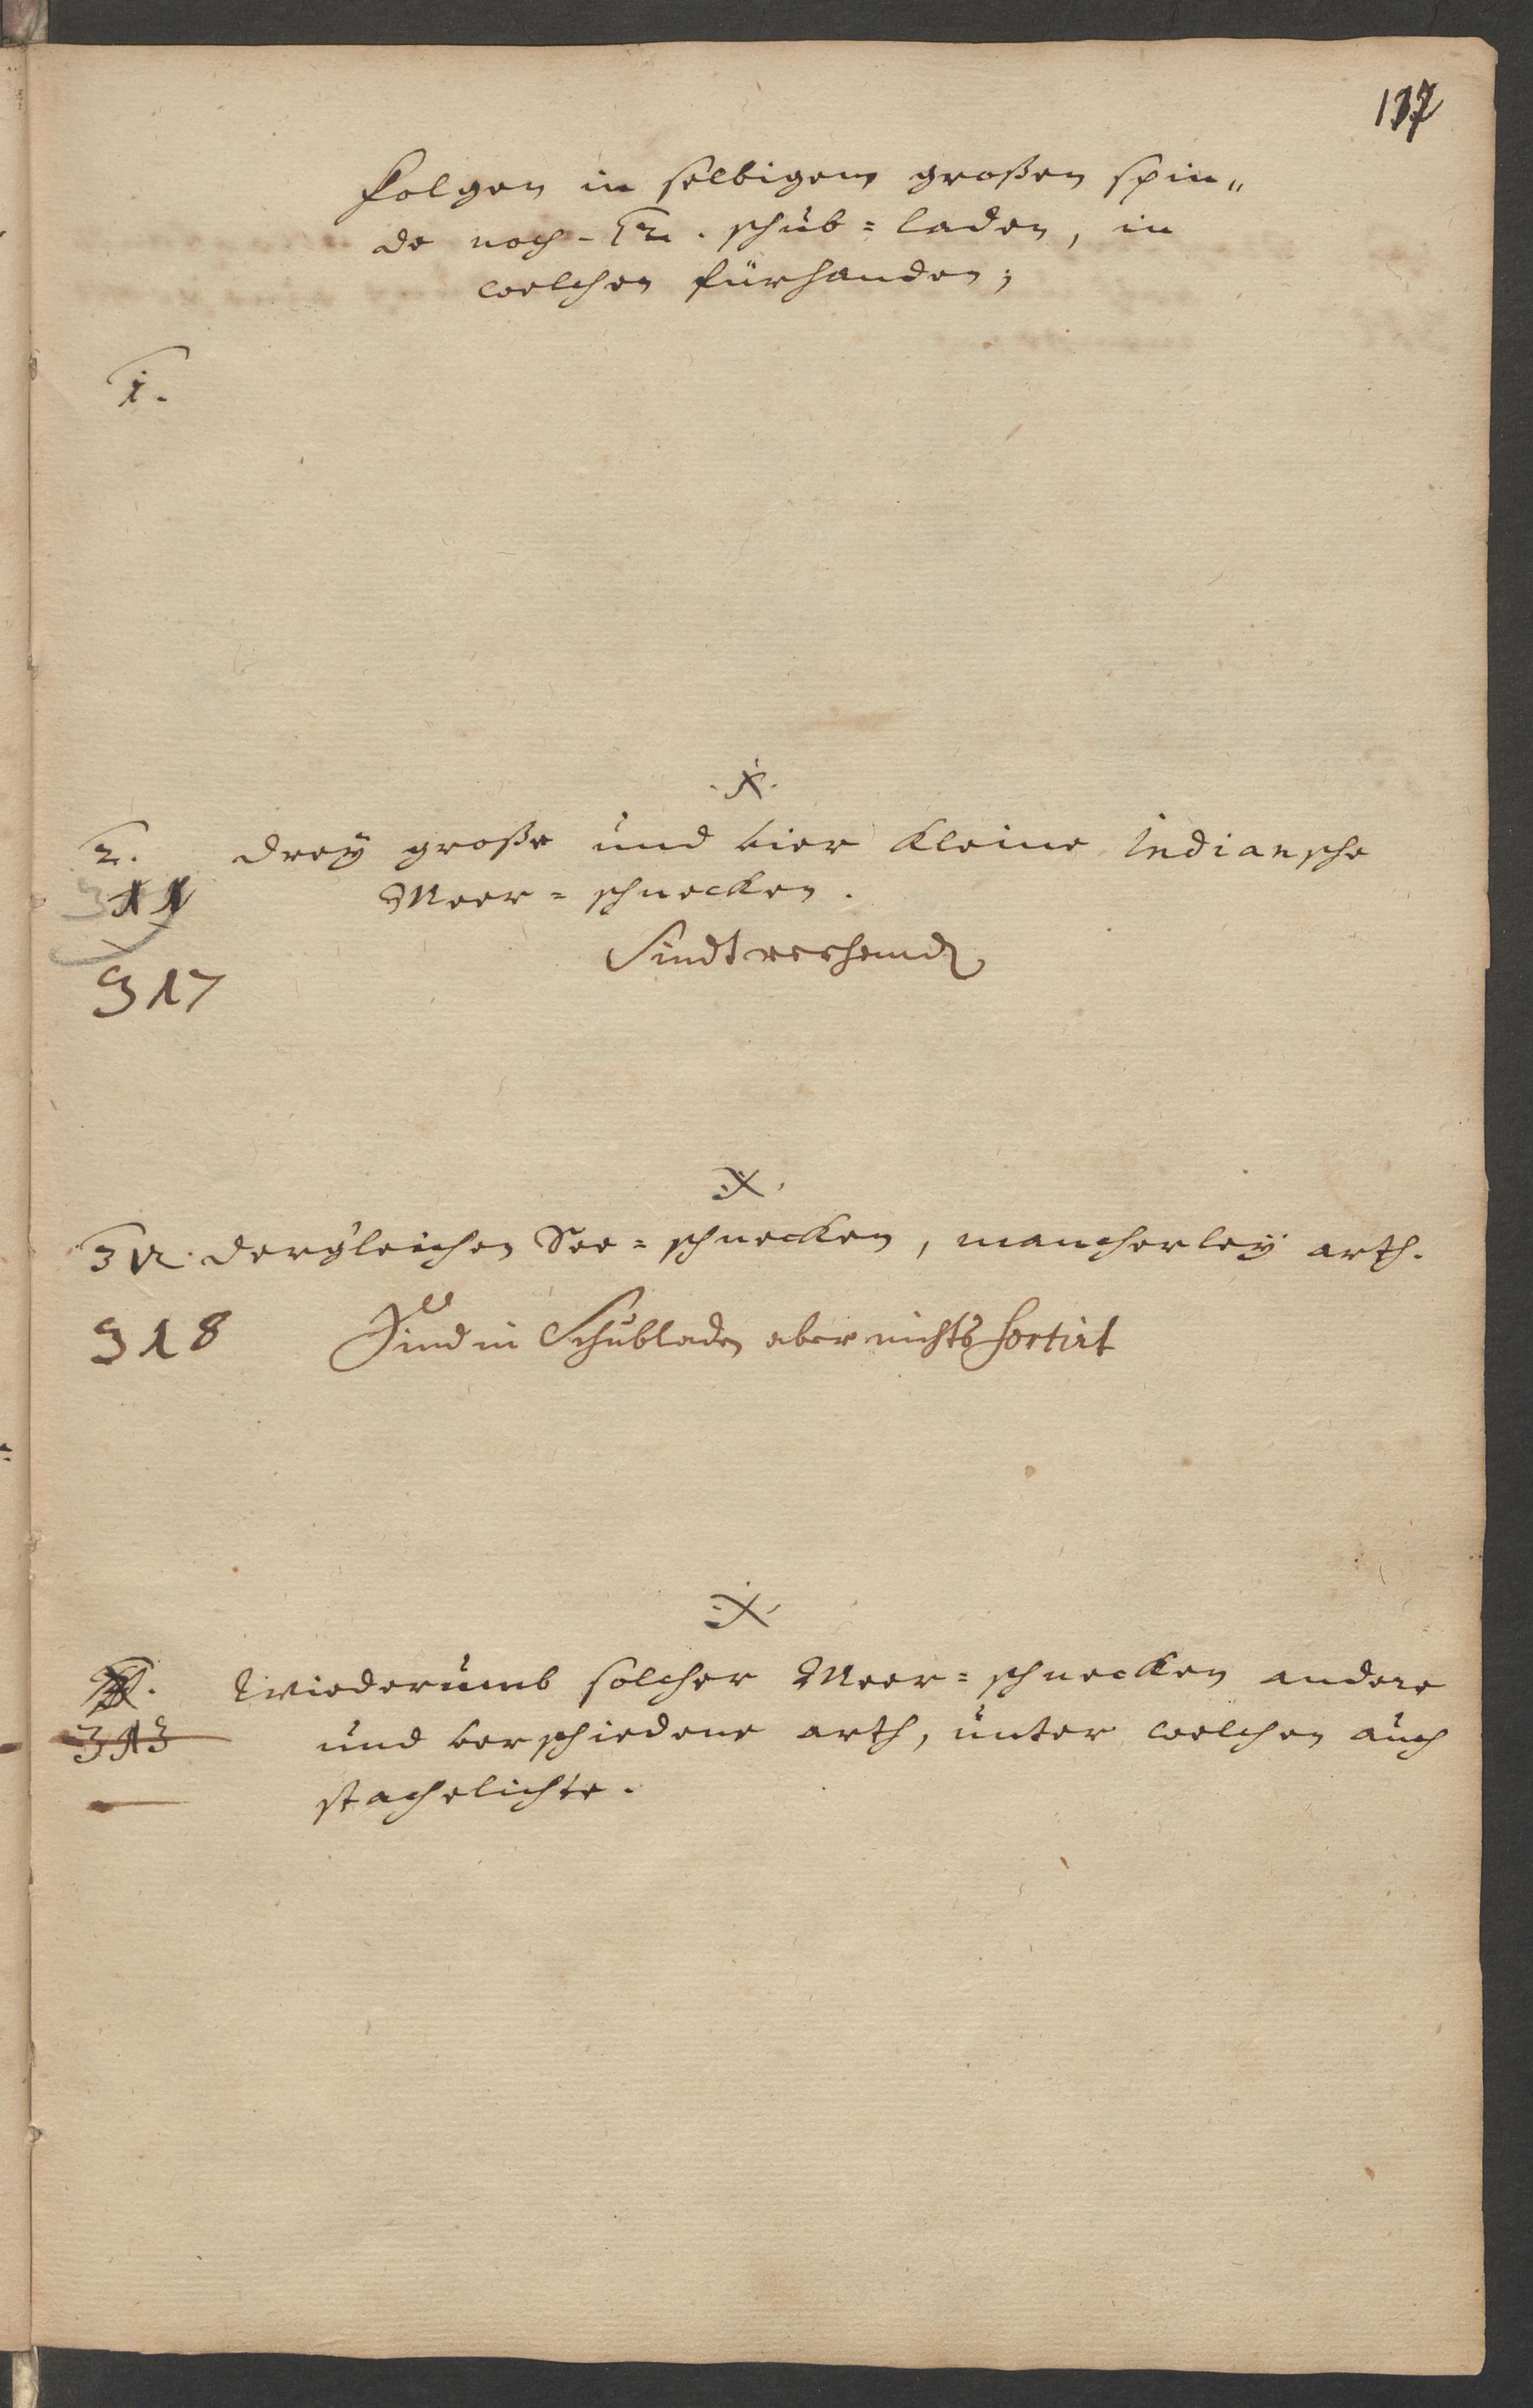 folgen in selbigem großen spin„
de noch - 12 . schüb = laden, in
welchen fürhanden;
1.
2. drey große und vier kleine Indiansche
Meer = schnecken .
Sindt vorhand
317
312. dergleichen See = schnecken , mancherley arth.
318 Sind in Schubladen aber nichts sortirt
Wiederümb solcher Meer = schnecken andere
313 und verschiedene arth, unter welchen auch
stachelichte .